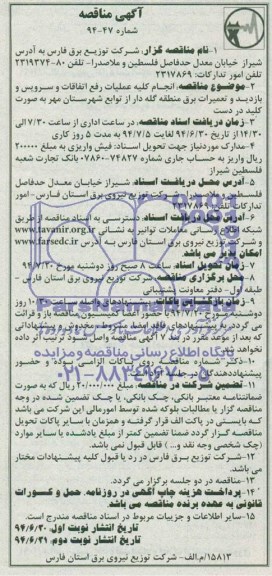 آگهی مناقصه
شماره ۴۷-۹۴
۱-نام مناقصه گزار: شرکت توزیع برق فارس به آدرس
شیراز خیابان معدل حدفاصل فلسطین و ملاصدرا- تلفن ۸۰-۲۳۱۹۳۷۴
تلفن امور تدارکات: ۲۳۱۷۸۶۹
۲-موضوع مناقصه: انجام کلیه عملیات رفع اتفاقات و سرویس و
بازدید و تعمیرات برق منطقه گله دار از توابع شهرستان مهر به صورت
کلید در دست
۳-زمان دریافت اسناد مناقصه: در ساعت اداری از ساعت ۷/۳۰ الی
۱۴/۳۰ از تاریخ ۹۴/۶/۳۰ لغایت ۹۴/۷/۵ به مدت ۵ روز کاری
۴-مدارک موردنیاز جهت تحویل اسناد: فیش واریزی به مبلغ ۲۰۰۰۰۰
ریال واریز به حساب جاری شماره ۰۷۸۶۰۰۷۴۸۲۷ بانک تجارت شعبه
فلسطین شیراز
۵-آدرس محل دریافت اسناد: شیراز خیابان معدل حدفاصل
فلسطین و ملاصدرا- شرکت توزیع نیروی برق استان فارس- امور
تدارکات تلفن ۲۳۱۷۸۶۹
۶-آدرس محل دریافت اسناد: دسترسی به اسناد مناقصه از طریق
شبکه اطلاع رسانی معاملات توانیر به نشانی www.tavanir.org.ir
و شرکت توزیع نیروی برق استان فارس به آدرس www.farsedc.ir
امکان پذیر می باشد
۷-زمان تحویل اسناد: ساعت ۸ صبح روز دوشنبه مورخ ۹۴/۷/۲۰
۸-محل برگزاری مناقصه: شرکت توزیع نیروی برق استان فارس-
طبقه اول- دفتر معاونت پشتیبانی
۹-زمان بازگشایی پاکات: روز
دوشنبه مورخ ۹۴/۷/۲۰ با حضور اعضا کمیسیون مناقصه باز و قرائت
می گردد. به پیشنهادهای فاقد امضا، مشروط، مخدوش و پیشنهاداتی
که بعد از موعد مقرر در بند ۷ آگهی مناقصه واصل شود ترتیب اثر داده
نخواهد شد
۱۰-ذکر شماره مناقصه روی پاکات الزامی بوده و حضور
پیشنهاددهندگان در جلسه
۱۱-تضمین شرکت در مناقصه: مبلغ ۲۰/۰۰۰/۰۰۰ ریال که به صورت
ضمانتنامه معتبر بانکی، چک بانکی، یا چک تضمین شده در وجه
مناقصه گزار یا مطالبات بلوکه شده توسط امورمالی این شرکت می باشد
که بایستی در پاکت الف قرار گرفته و همزمان با سایر پاکات تحویل
مناقصه گزار گردد ضمنا تضمین کمتر از مبلغ یادشده یا سایر موارد
(چک شخصی وجه نقد و...) قابل قبول نمی باشد.
۱۲-شرکت توزیع برق فارس در رد یا قبول کلیه پیشنهادات مختار
می باشد.
۱۳-مناقصه در دو جلسه برگزار می گردد.
۱۴-پرداخت هزینه چاپ آگهی در روزنامه، حمل و کسورات
قانونی به عهده برنده مناقصه می باشد
۱۵-سایر اطلاعات و جزییات مربوط در اسناد مناقصه مندرج است.
تاریخ انتشار نوبت اول: ۹۴/۶/۳۰
تاریخ انتشار نوبت دوم: ۹۴/۶/۳۱
۱۵۸۱۳/م.الف- شرکت توزیع نیروی برق استان فارس
پایگاه اطلاع رسانی مناقصه و مزایده
۰۲۱-۸۸۳۴۹۶۷۰-۵